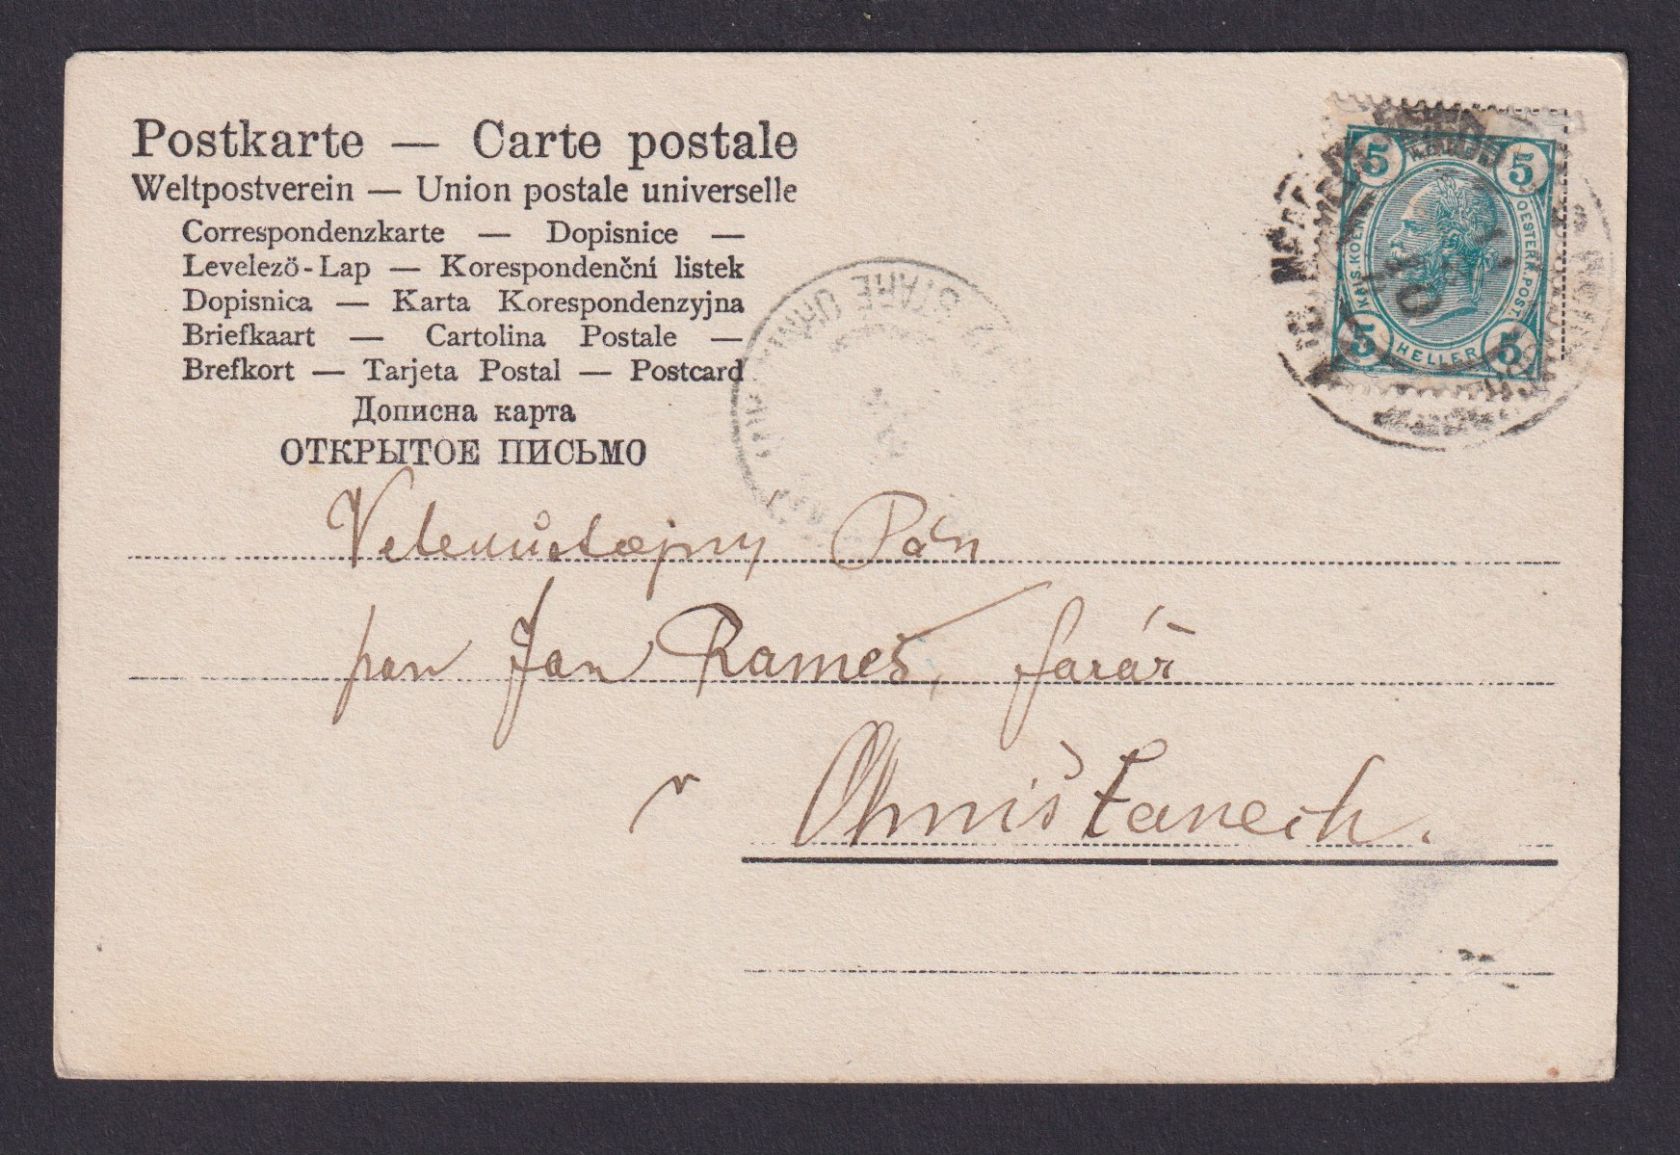 Postkarte — Carte postale
Weltpostverein — Union postale universelle
Correspondenzkarte — Dopisnice —
Levelező-Lap — Korespondenční listek
Dopisnica — Karta Korespondenzyjna
Briefkaart — Cartolina Postale —
Brefkort — Tarjeta Postal — Postcard
Дописна карта
ОТКРЫТОЕ ПИСЬМО
5 5
KAIS. KOENIGL. OESTERR. POST.
5 HELLER 5
10
STARÉ
Veledůstojný Pán
pan Jan Rameš, farář
v Ohništanech.